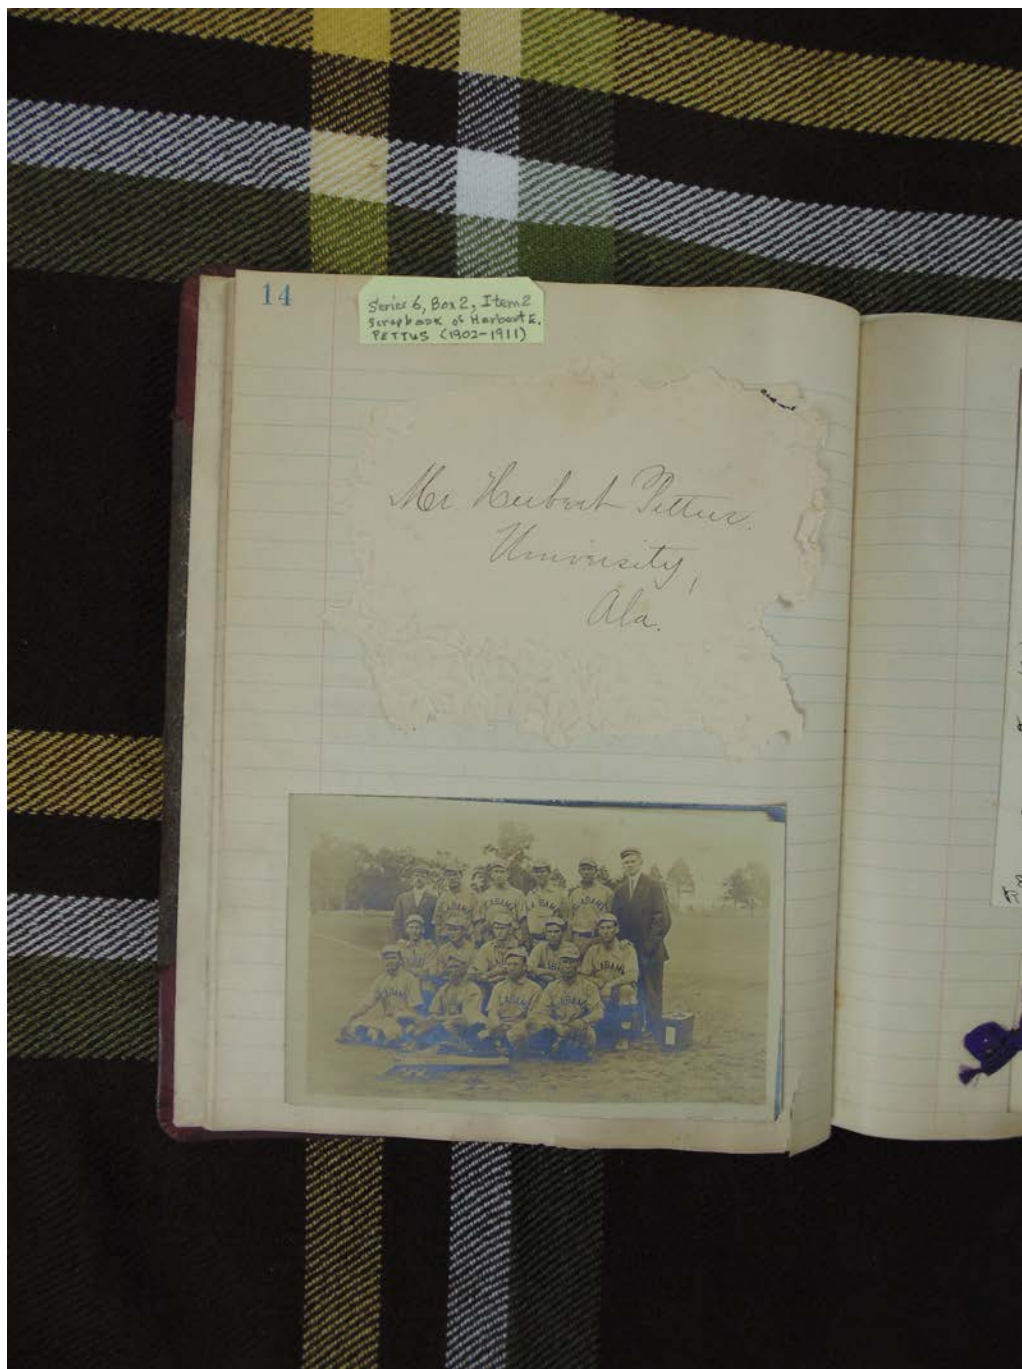 14
Series 6, Box 2, Item 2
Scrapbook of Herbert E.
PETTUS (1902-1911)
Mr Herbert Pettus.
University,
Ala.
ALABAMA
LABAMA
LABAMA